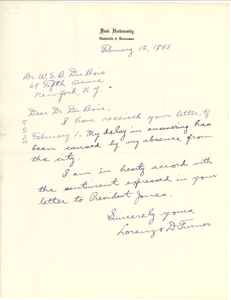 Fisk University
Nashville 8, Tennessee
February 12, 1945
Dr. W. E. B. Du Bois
69 Fifth Avenue
New York, N. Y.
Dear Dr. Du Bois:
I have received your letter of
February 1. My delay in answering has
been caused by my absence from
the city.
I am in hearty accord with
the sentiment expressed in your
letter to President Jones.
Sincerely yours,
Lorenzo D. Turner